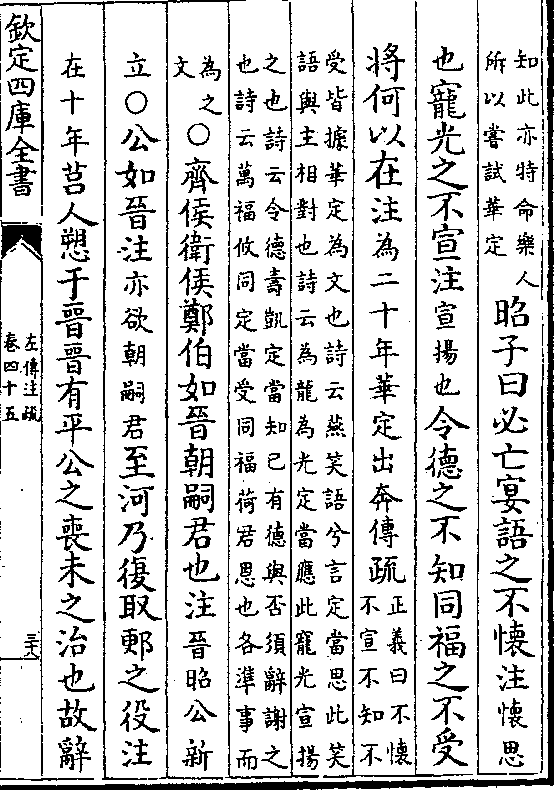 知此亦特命樂人
所以嘗試華定
昭子曰必亡宴語之不懷注懷思
也寵光之不宣注宣揚也令德之不知同福之不受
將何以在注為二十年華定出奔傳疏
正義曰不懷
不宣不知不
受皆據華定為文也詩云燕笑語兮言定當思此笑
語與主相對也詩云為龍為光定當應此寵光宣揚
之也詩云令德壽凱定當知已有德與否須辭謝之
也詩云萬福攸同定當受同福荷君恩也各準事而
為之
文
○齊侯衛侯鄭伯如晉朝嗣君也注晉昭公新
立○公如晉注亦欲朝嗣君至河乃復取郠之役注
在十年莒人愬于晉晉有平公之喪未之治也故辭
欽定四庫全書
左傳注疏
卷四十五
三六